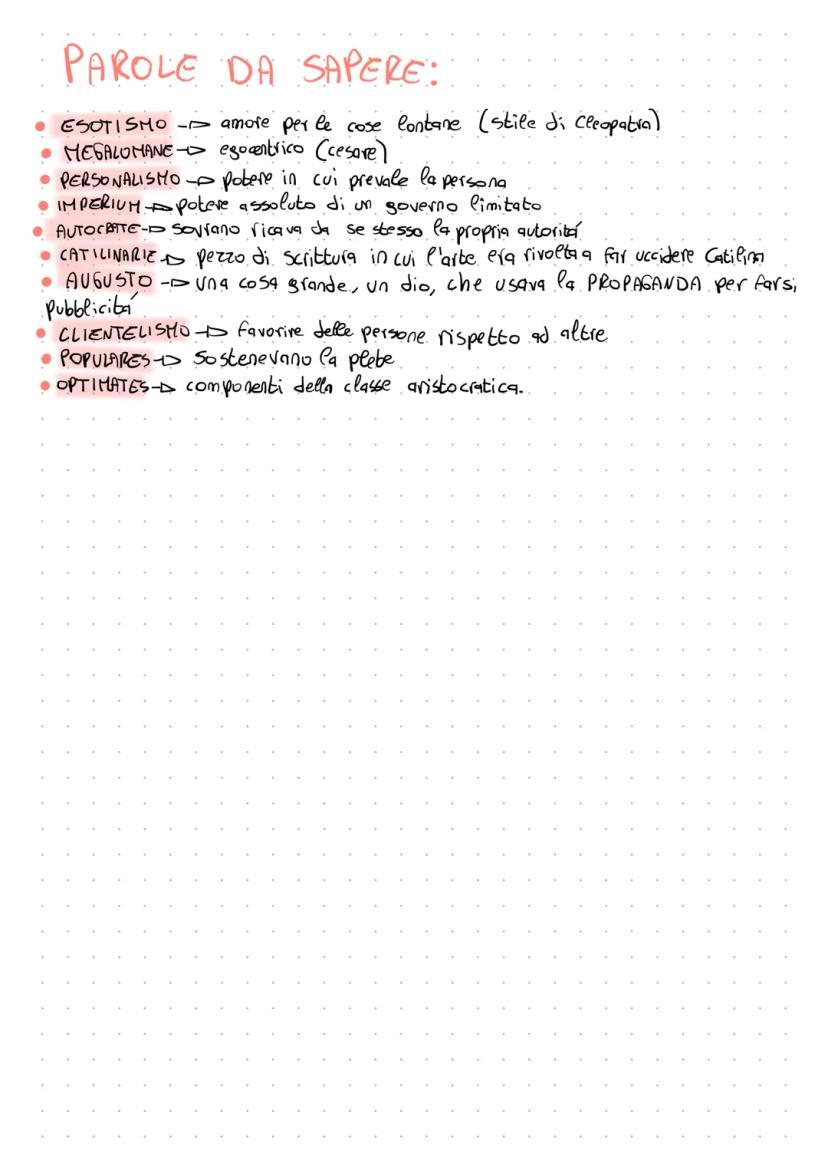 PAROLE DA SAPERE:
• ESOTISMO -> amore per le cose lontane (stile di Cleopatra)
• MEGALOMANE -> egocentrico (cesare)
• PERSONALISMO -> potere in cui prevale la persona
• IMPERIUM -> potere assoluto di un governo limitato
• AUTOCRATE -> sovrano ricava da se stesso la propria autoritá
• CATILINARIE -> pezzo di scrittura in cui l'arte era rivolta a far uccidere Catilina
• AUGUSTO -> una cosa grande, un dio, che usava la PROPAGANDA per farsi
pubblicitá
• CLIENTELISMO -> favorire delle persone rispetto ad altre
• POPULARES -> sostenevano la plebe
• OPTIMATES -> componenti della classe aristocratica.